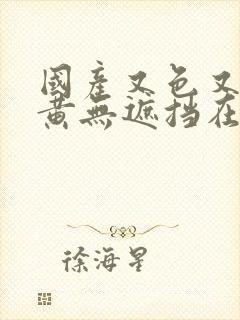 國產又色又
黃無遮挡在
徐海星